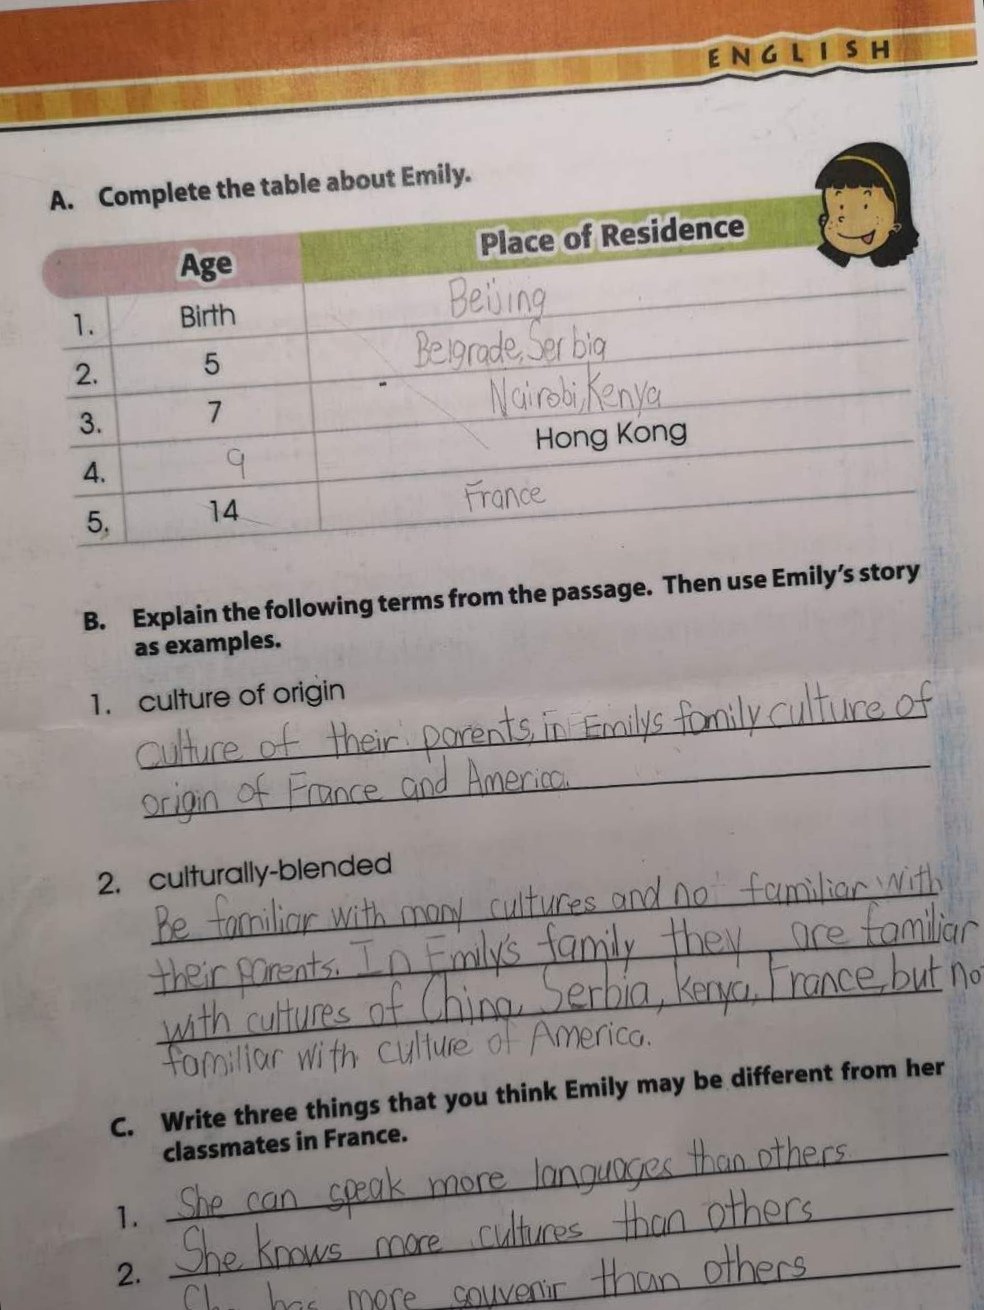 ENGLISH
A. Complete the table about Emily.
Age Place of Residence
1. Birth Beijing
2. 5 Belgrade, Serbia
3. 7 Nairobi, Kenya
4. 9 Hong Kong
5. 14 France
B. Explain the following terms from the passage. Then use Emily's story
as examples.
1. culture of origin
Culture of their parents, in Emilys family culture of
origin of France and America.
2. culturally-blended
Be familiar with many cultures and no familiar with
their parents. In Emily's family they are familiar
with cultures of China, Serbia, Kenya, France, but no
familiar with culture of America.
C. Write three things that you think Emily may be different from her
classmates in France.
1. She can speak more languages than others
2. She knows more cultures than others
She has more souvenir than others